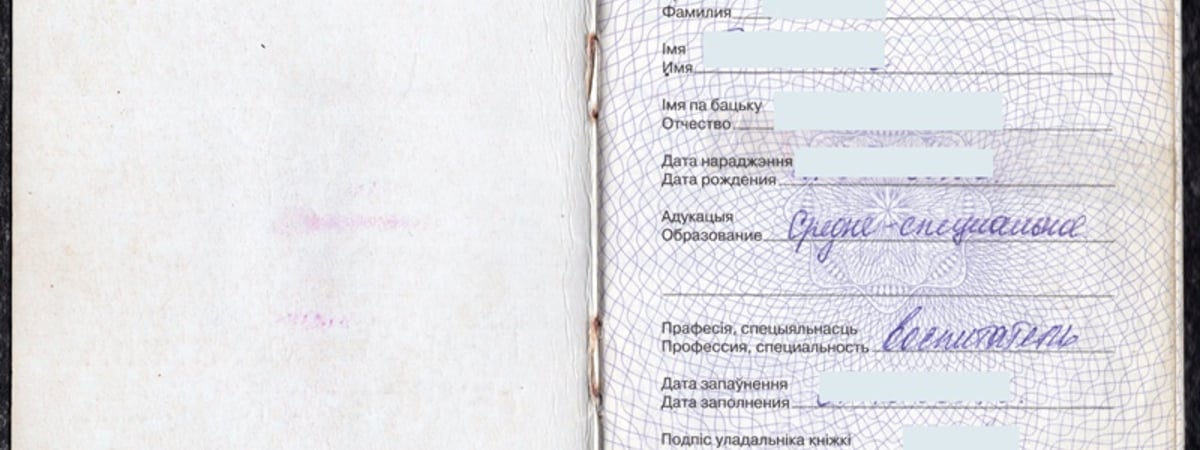 Фамилия
Імя
Имя
Імя па бацьку
Отчество
Дата нараджэння
Дата рождения
Адукацыя
Образование Средне-специальное
Прафесія, спецыяльнасць
Профессия, специальность воспитатель
Дата запаўнення
Дата заполнения
Подпіс уладальніка кніжкі